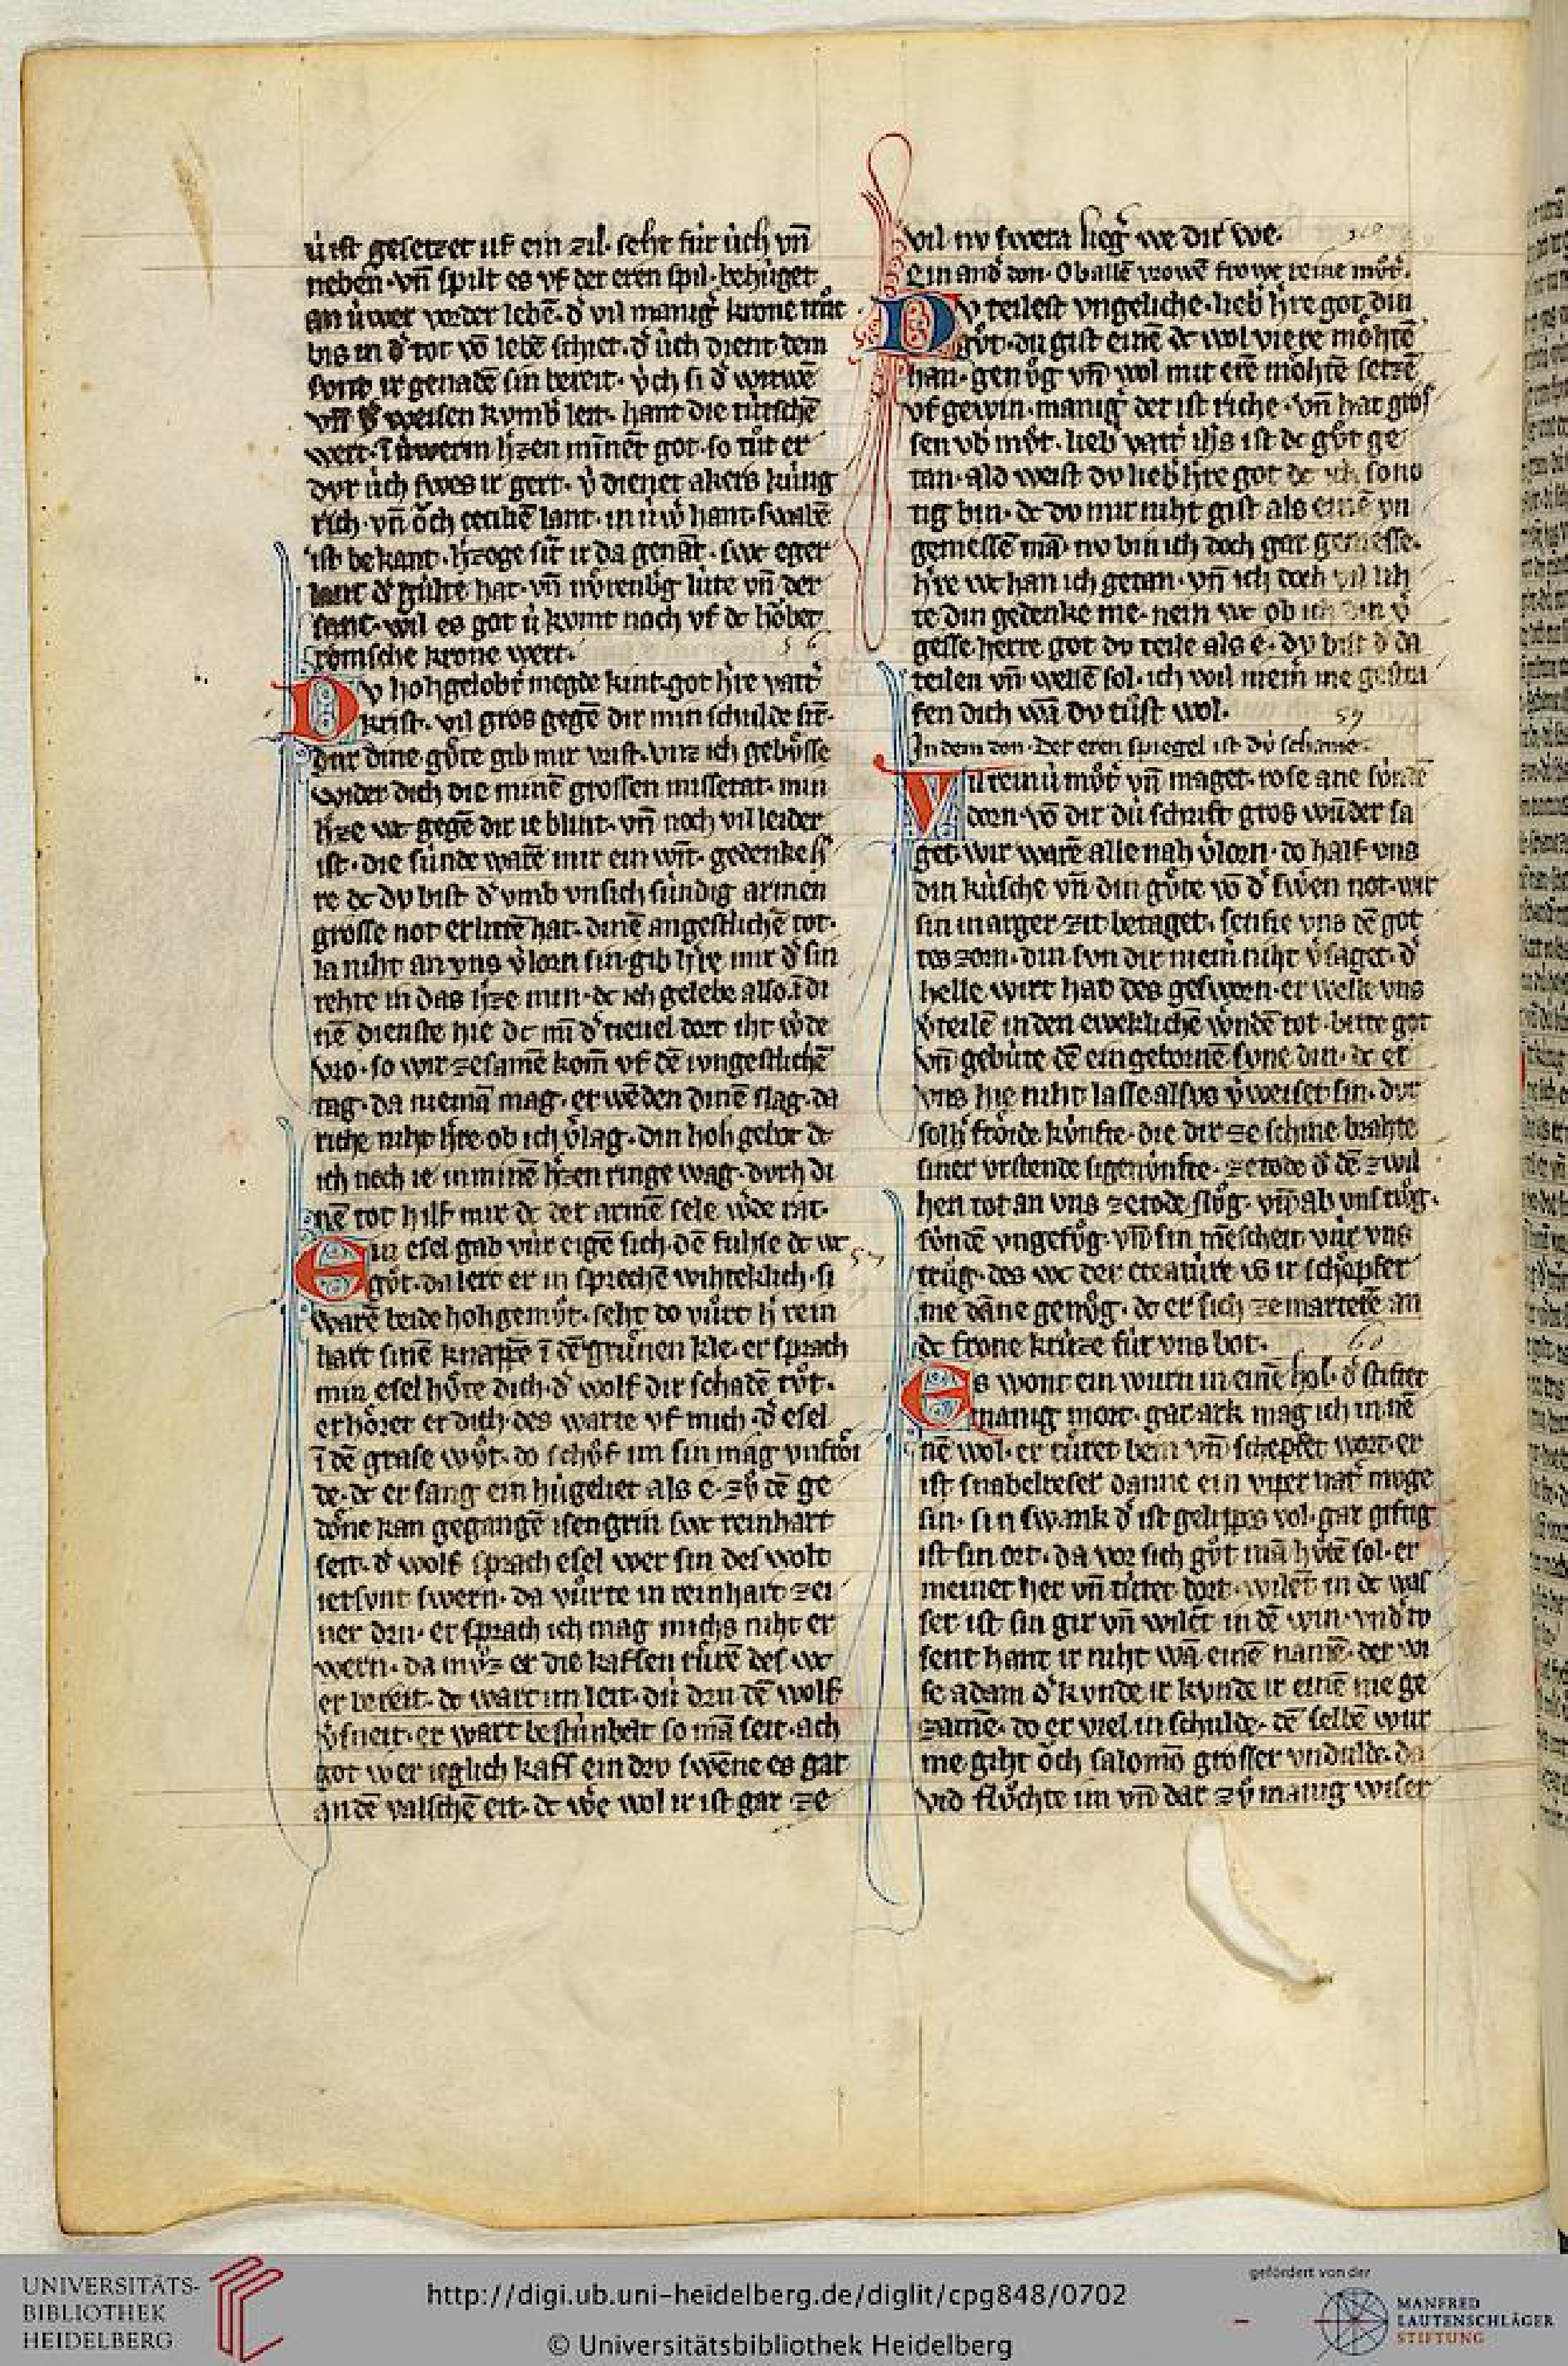 ù ist gesetzet uf ein zil · seht für ùch vn̄
neben · vn̄ spilt es vf der eren spil · behùget
an ùwer vorder lebē · d' vil manig' krone
bis in d' tot vō lebē schiet · d' ùch dient dem
sont ir genadē sin bereit · ỏch si d' witwē
vn̄ d' weisen kvmb' leit · hant die tùtschē
wert · ī ùwerm h'zen minnēt got · so tůt er
dvr ùch swes ir gert · v̓ dienet akers kùng
rich · vn̄ ǒch cecilie lant · in ùw' hant · swabē
ist bekant · h'zoge sit ir da genāt · swc eger
lant d' gùlte hat · vn̄ nůrenb'g lùte vn̄ der
sant · wil es got ù komt noch vf dc hǒbet
rōmsche krone wert · 56
Dv hohgelobt' megde kint · got h're vatt'
krist · vil gros gegē dir min schulde sīt ·
dur dine gǒte gib mir vrist · vnz ich gebǔsse
wider dich die minē grossen missetat · min
h'ze wc gegē dir ie blint · vn̄ noch vil leider
ist · die sùnde warē mir ein wīt · gedenke h'
re dc dv bist d' vmb vnsich sùndig armen
grosse not erlittē hat · dinē angestlichē tot ·
la niht an vns v'lorn sin · gib h're mir d' sin
rehte in das h'ze min · dc ich gelebe also · ī di
nē dienste hie dc mī d' tieuel dort iht w'de
vro · so wir zesamē kom̄ vf dē iungestlichē
tag · da niemā mag · erwēden dinē slag · da
riche niht h're · ob ich v'lag · din hoh gebot dc
ich noch ie in minē h'zen ringe wag · dvrh di
nē tot hilf mir dc der armē sele w'de rat ·
Ein esel gab vùr eigē sich · dē fuhse dc wc 57
gǒt · da lert er in sprechē wihteklich · si
warē beide hohgemůt · seht do vůrt h' rein
hart sinē knappē ī dē grùnen kle · er sprach
min esel hǔte dich · d' wolf dir schadē tǔt ·
erhōret er dich · des warte vf mich · d' esel
ī dē grase wůt · do schůf im sin mag vnfrōi
de · dc er sang ein hùgeliet als e · zů dē ge
dōne kan gegangē isengrin swc reinhart
seit · d' wolf sprach esel wer sin des wolt
ietsvnt swern · da vůrte in reinhart zei
ner drù · er sprach ich mag michs niht er
wern · da můz er die kafsen rùrē des wc
er bereit · dc wart im leit · dù drù dē wolf
v'sneit · er wart bestùnbelt so mā seit · ach
got wer ieglich kafs ein drv swēne es gat
an dē valschē eit · dc w'e wol ir ist gar ze
vil nv swera lieg' we dir we · 58
Ein and' don · Ob allē vrowē frowe reine můt' ·
Dv teilest vngeliche · lieb' h're got din
gǔt · du gist einē dc wol viere mōhtē
han · genǒg vn̄ wol mit erē mōhtē setzē
vf gewin · manig' der ist riche · vn̄ hat gros
sen vb' mǔt · lieb' vatt' ihs ist dc gǔt ge
tan · ald weist dv lieb' h're got dc ich so no
tig bin · dc dv mir niht gist als einē vn
gemessē mā · nv bin ich doch gar gemesse ·
h're wc han ich getan · vn̄ ich doch vil lih
te din gedenke me · nein wc ob ich din v'
gesse · herre got dv teile als e · dv bist d' da
teilen vn̄ wellē sol · ich wil niem' me gestra
fen dich wā dv tůst wol · 59
In dem don · Der eren spiegel ist dù schame ·
Vil reinù můt' vn̄ maget · rose ane sùndē
dorn · vō dir dù schrift gros wūder sa
get · wir warē alle nah v'lorn · do half vns
din kùsche vn̄ din gǔte vō d' sw'en not · wir
sin in arger zit betaget · senfte vns dē got
tes zorn · din svn dir niem' niht v'saget · d'
helle wirt hat des gesworn · er welle vns
v'teilē in den eweklichē w'ndē tot · bitte got
vn̄ gebùte dē eingebornē svne din · dc er
vns hie niht lasse alsvs v'weiset sin · dvr
solh' frōide kùnfte · die dir ze schine brahte
siner vrstende sigenùnfte · ze tode d' dē zwil
hen tot an vns ze tode slůg · vn̄ ab vns trůg ·
sùndē vngefǔg · vn̄ sin mēscheit vùr vns
trůg · des wc der creatùre vs ir schepfer
me dāne genůg · dc er sich ze marterē an
dc frone krùze fùr vns bot · 60
Es wont ein wurn in einē hol · d' stiftet
manig mort · gar ark mag ich in nē
nē wol · er tùret bern vn̄ schepfet wort · er
ist snabelreser danne ein viper nat' moge
sin · sin swank d' ist gelippes vol · gar giftig
ist sin ort · da vor sich gǔt mā hǔtē sol · er
meinet her vn̄ tùtet dort · wilēt in dc was
ser ist sin gir vn̄ wilēt in dē win · vnd' to
sent hant ir niht wā einē namē · der wi
se adam d' kvnde ir kvnde ir einē nie ge
zamē · do er viel in schulde · dē selbē wur
me giht ǒch salomō grosser vndulde · da
vid flůchte im vn̄ dar zů manig wiser
UNIVERSITÄTS-
BIBLIOTHEK
HEIDELBERG
http://digi.ub.uni-heidelberg.de/diglit/cpg848/0702
© Universitätsbibliothek Heidelberg
gefördert von der
MANFRED
LAUTENSCHLÄGER
STIFTUNG